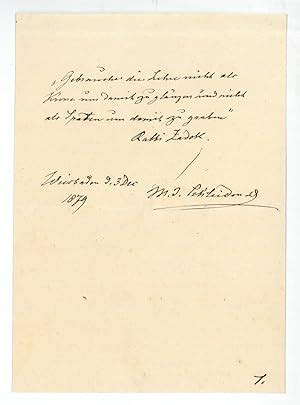 „Gebrauche die Lehre nicht als
Krone um damit zu glänzen und nicht
als Spaten um damit zu graben"
Rabbi Zadok.
Wiesbaden d. 3 Dec
1879
M. J. Schleiden
1.